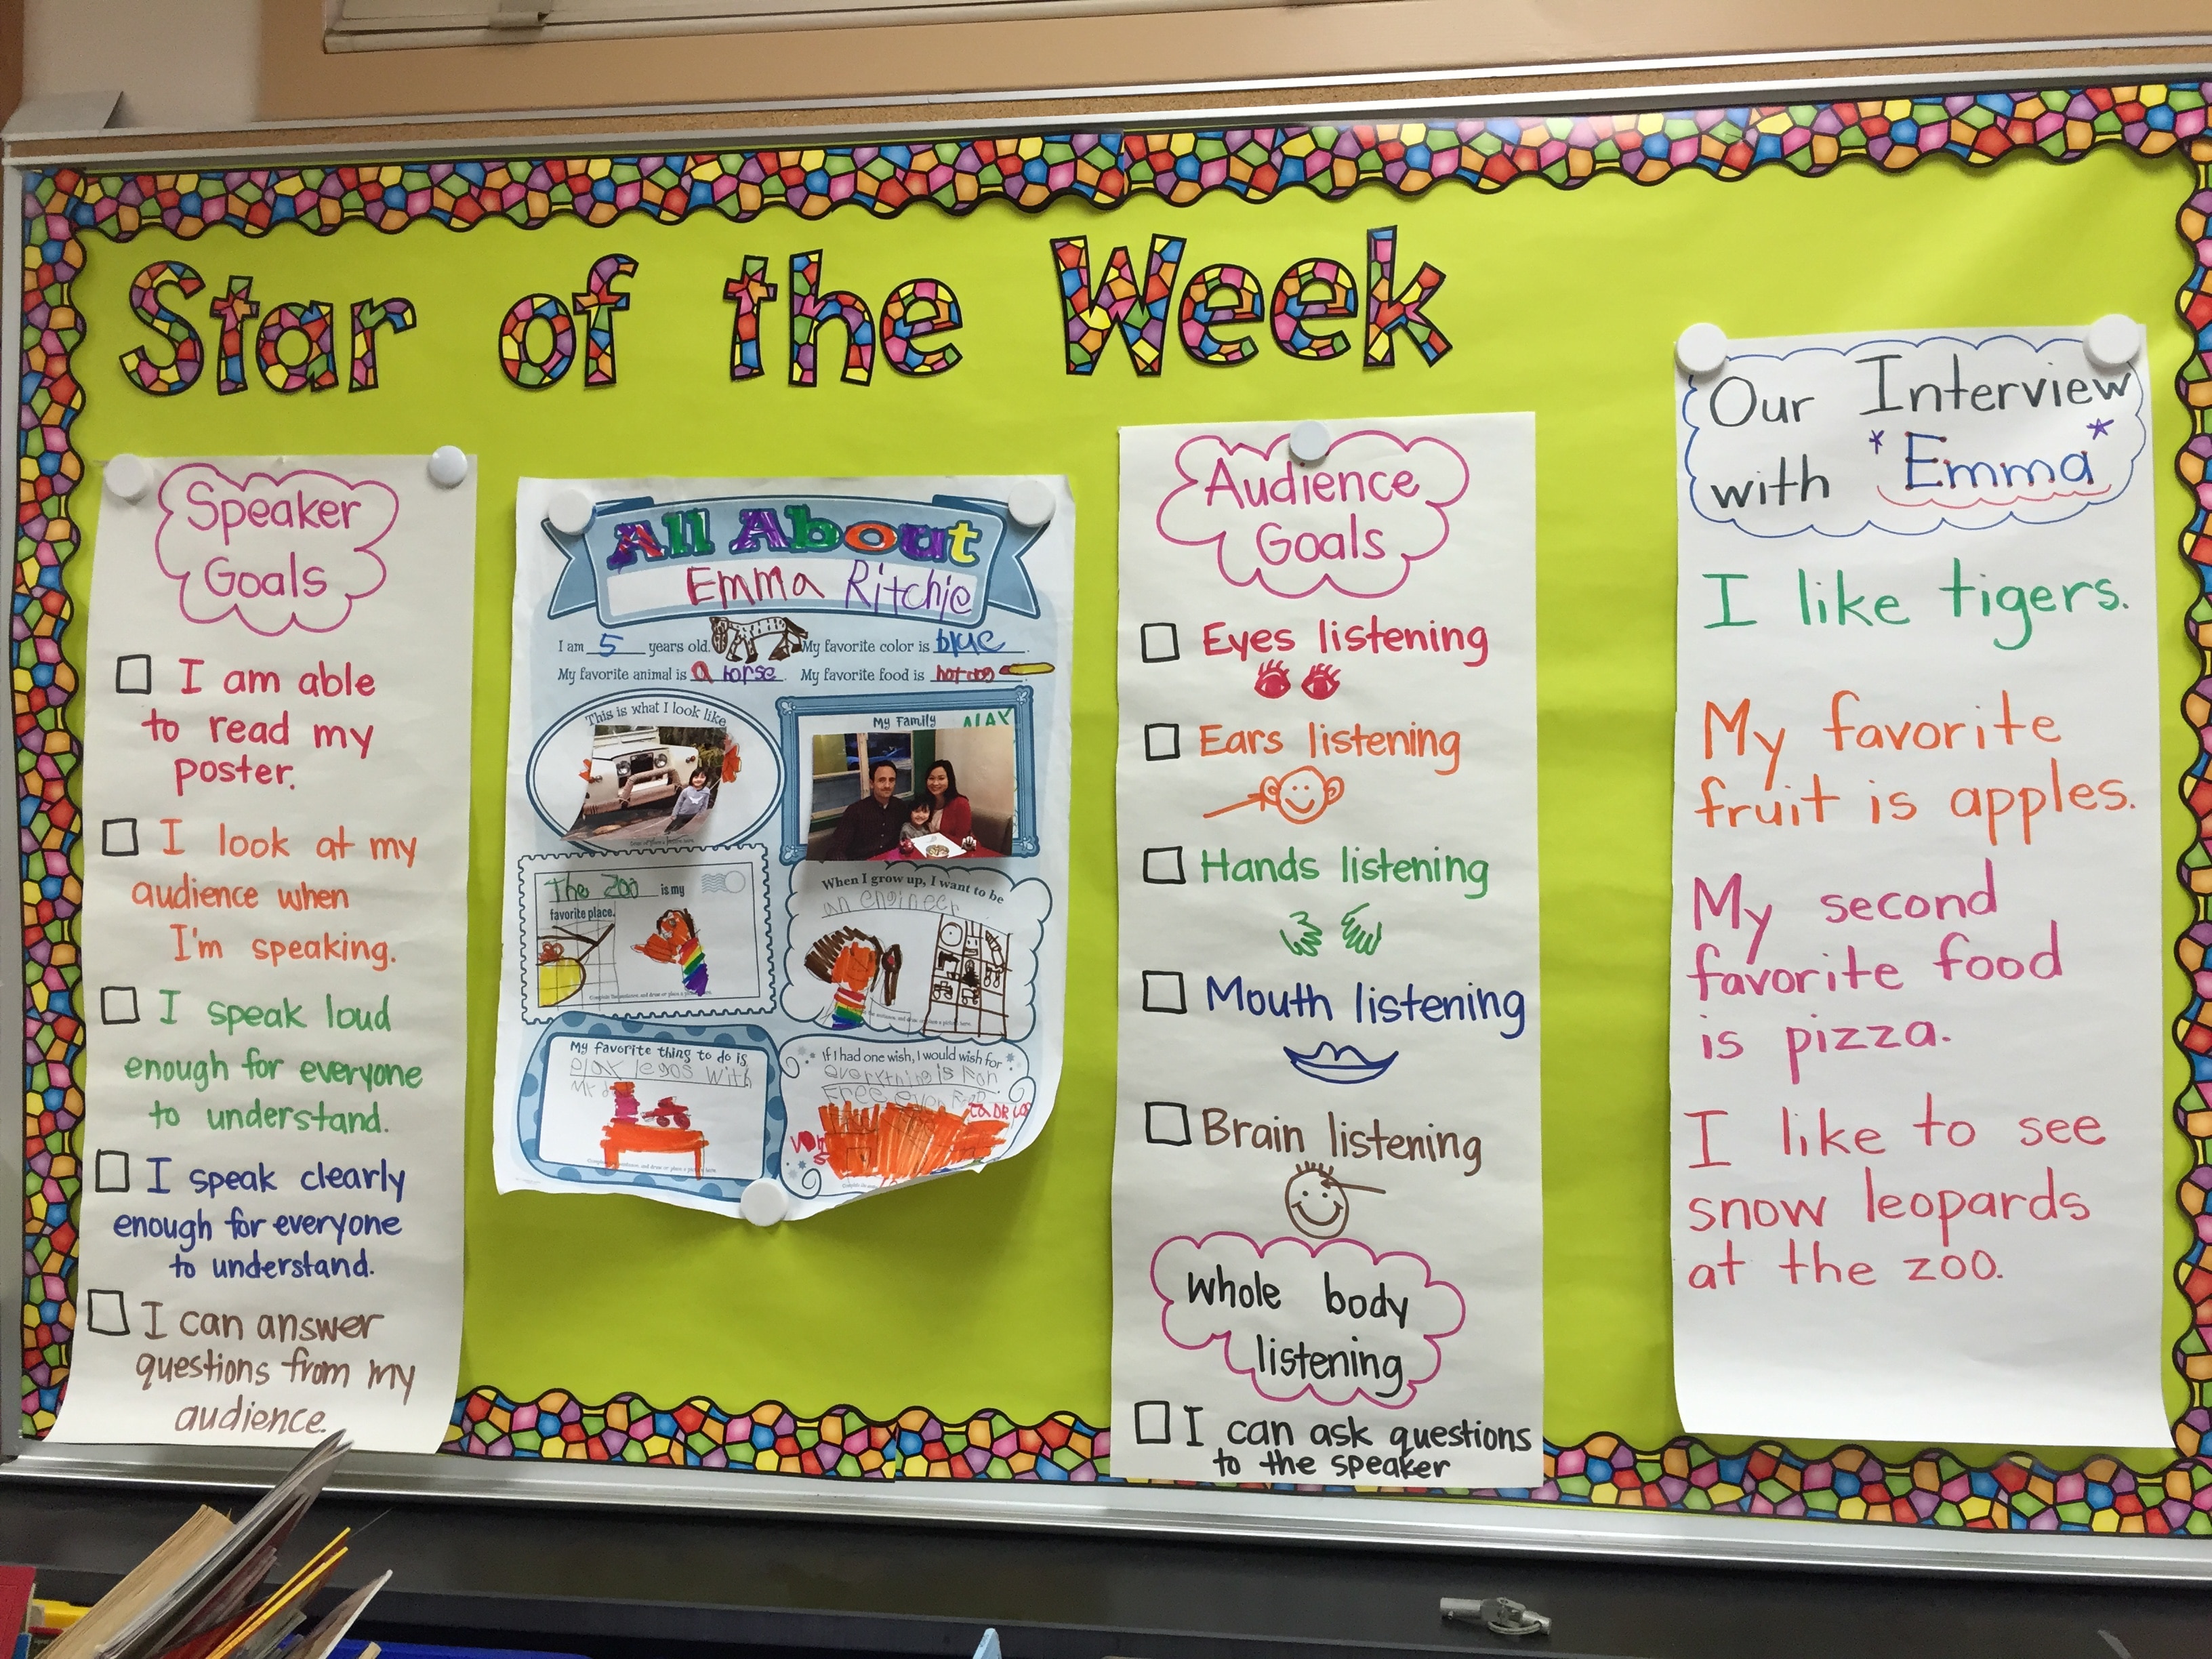 Star of the Week
Speaker
Goals
I am able
to read my
poster.
I look at my
audience when
I'm speaking.
I speak loud
enough for everyone
to understand.
I speak clearly
enough for everyone
to understand.
I can answer
questions from my
audience.
All About
Emma Ritchie
I am 5 years old. My favorite color is blue.
My favorite animal is a horse. My favorite food is hot dog
This is what I look like
My Family
The Zoo is my
favorite place.
When I grow up, I want to be
an engineer
My favorite thing to do is
play legos with
If I had one wish, I would wish for
everything is For
Free
Audience
Goals
Eyes listening
Ears listening
Hands listening
Mouth listening
Brain listening
whole body
listening
I can ask questions
to the speaker
Our Interview
with *Emma*
I like tigers.
My favorite
fruit is apples.
My second
favorite food
is pizza.
I like to see
snow leopards
at the zoo.